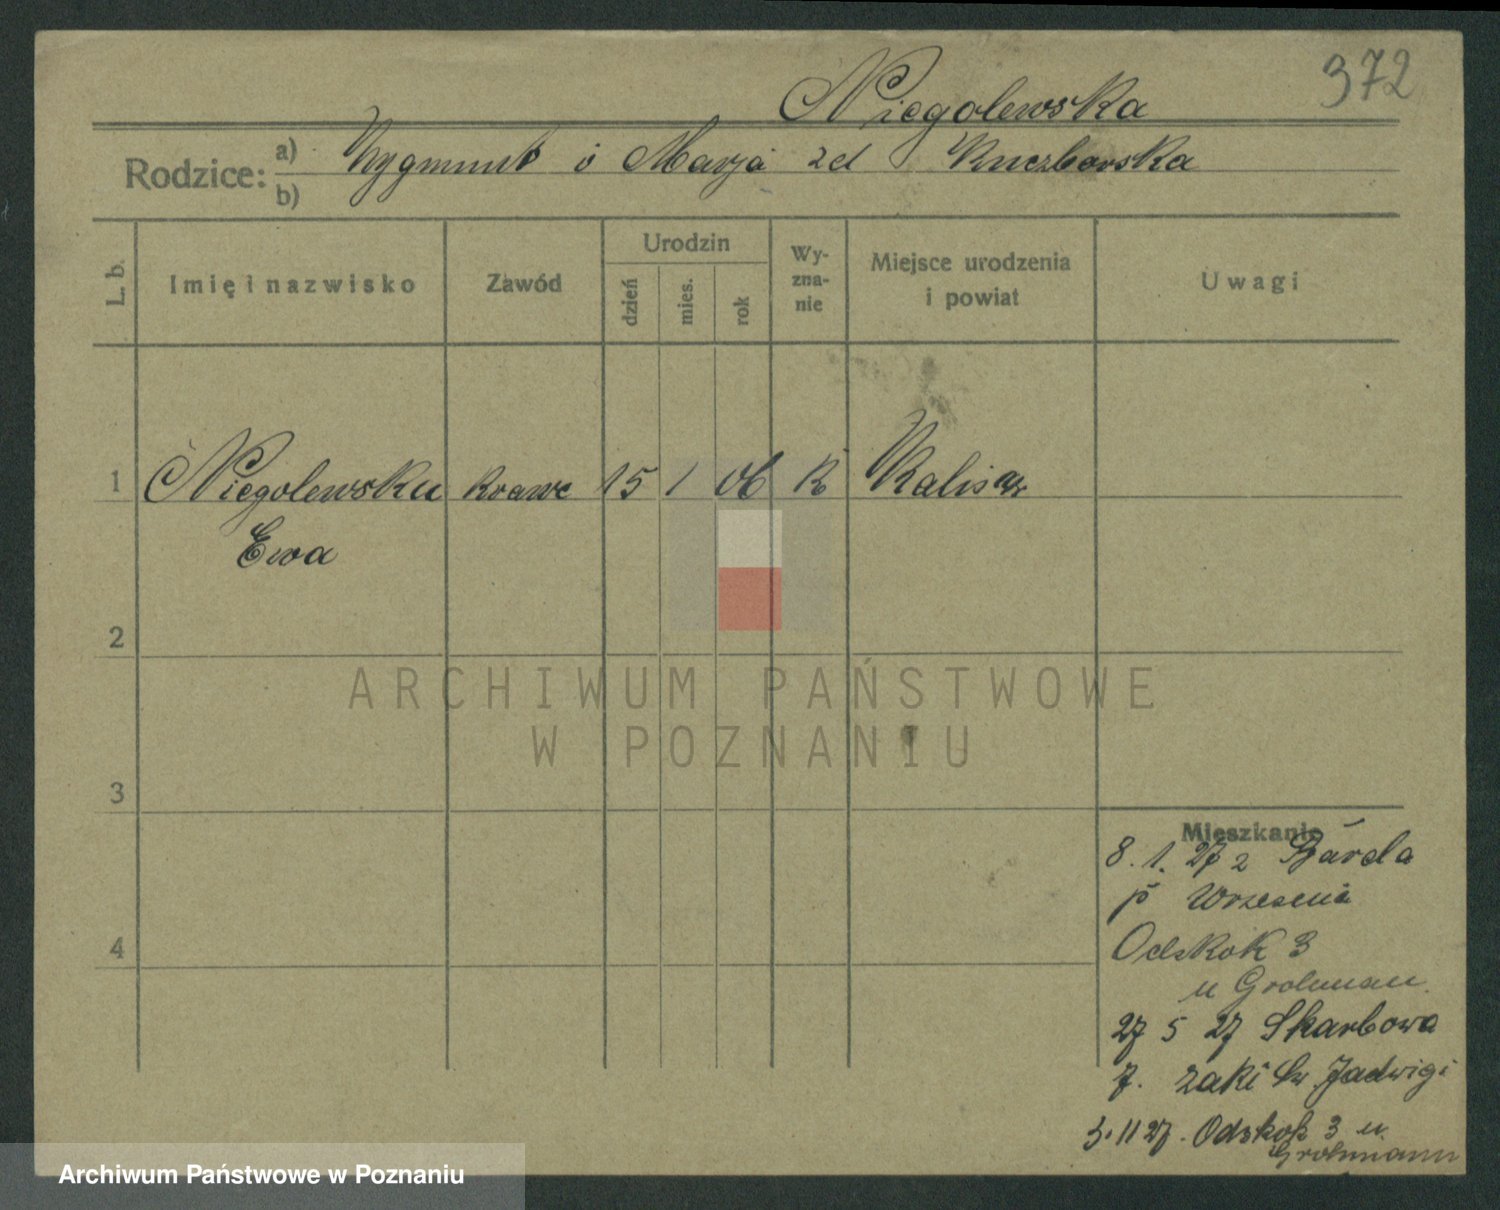 372
Niegolewska
Rodzice: a) Zygmunt i Marja zd Kuczborska
b)
L. b.
Imię i nazwisko
Zawód
Urodzin
dzień
mies.
rok
Wy-
zna-
nie
Miejsce urodzenia
i powiat
Uwagi
1 Niegolewska krawc 15 1 06 K Kalisz
Ewa
2
3
4
Mieszkanie
8. 1. 27 z Barda
p Wrzesnia
Odskok 3
u Grohman.
27 5 27 Skarbowa
7. zakł Sw Jadwigi
3. 11 27. Odskok 3 u.
Grohmann
ARCHIWUM PAŃSTWOWE
W POZNANIU
Archiwum Państwowe w Poznaniu